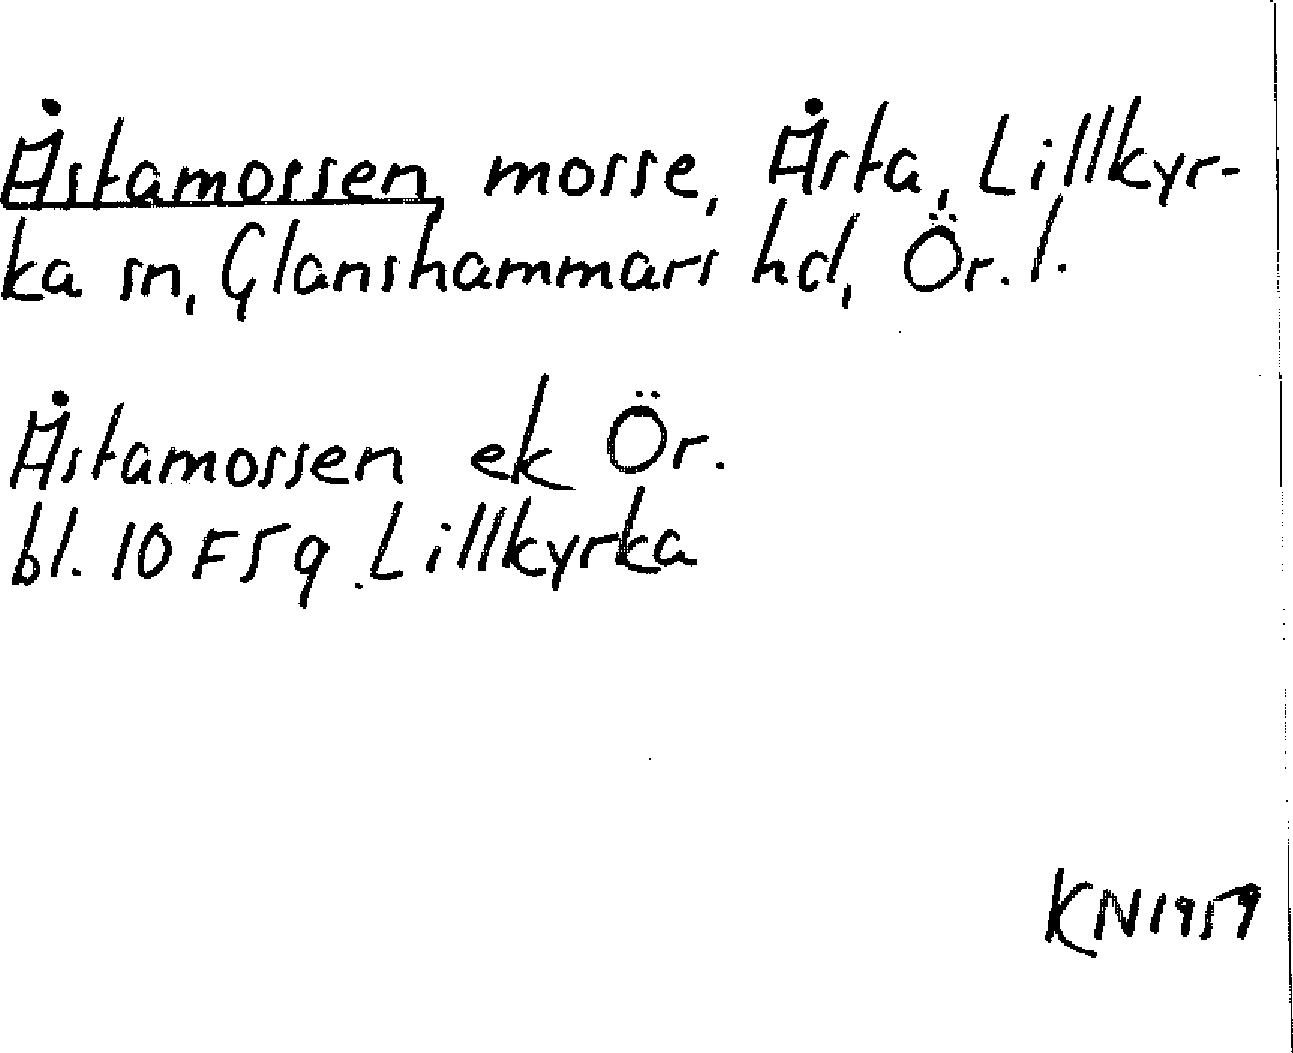 Åstamossen, mosse, Åsta, Lillkyr-
ka sn, Glanshammars hd, Ör. l.
Åstamossen ek Ör.
bl. 10 F 5 g Lillkyrka
KN 1959